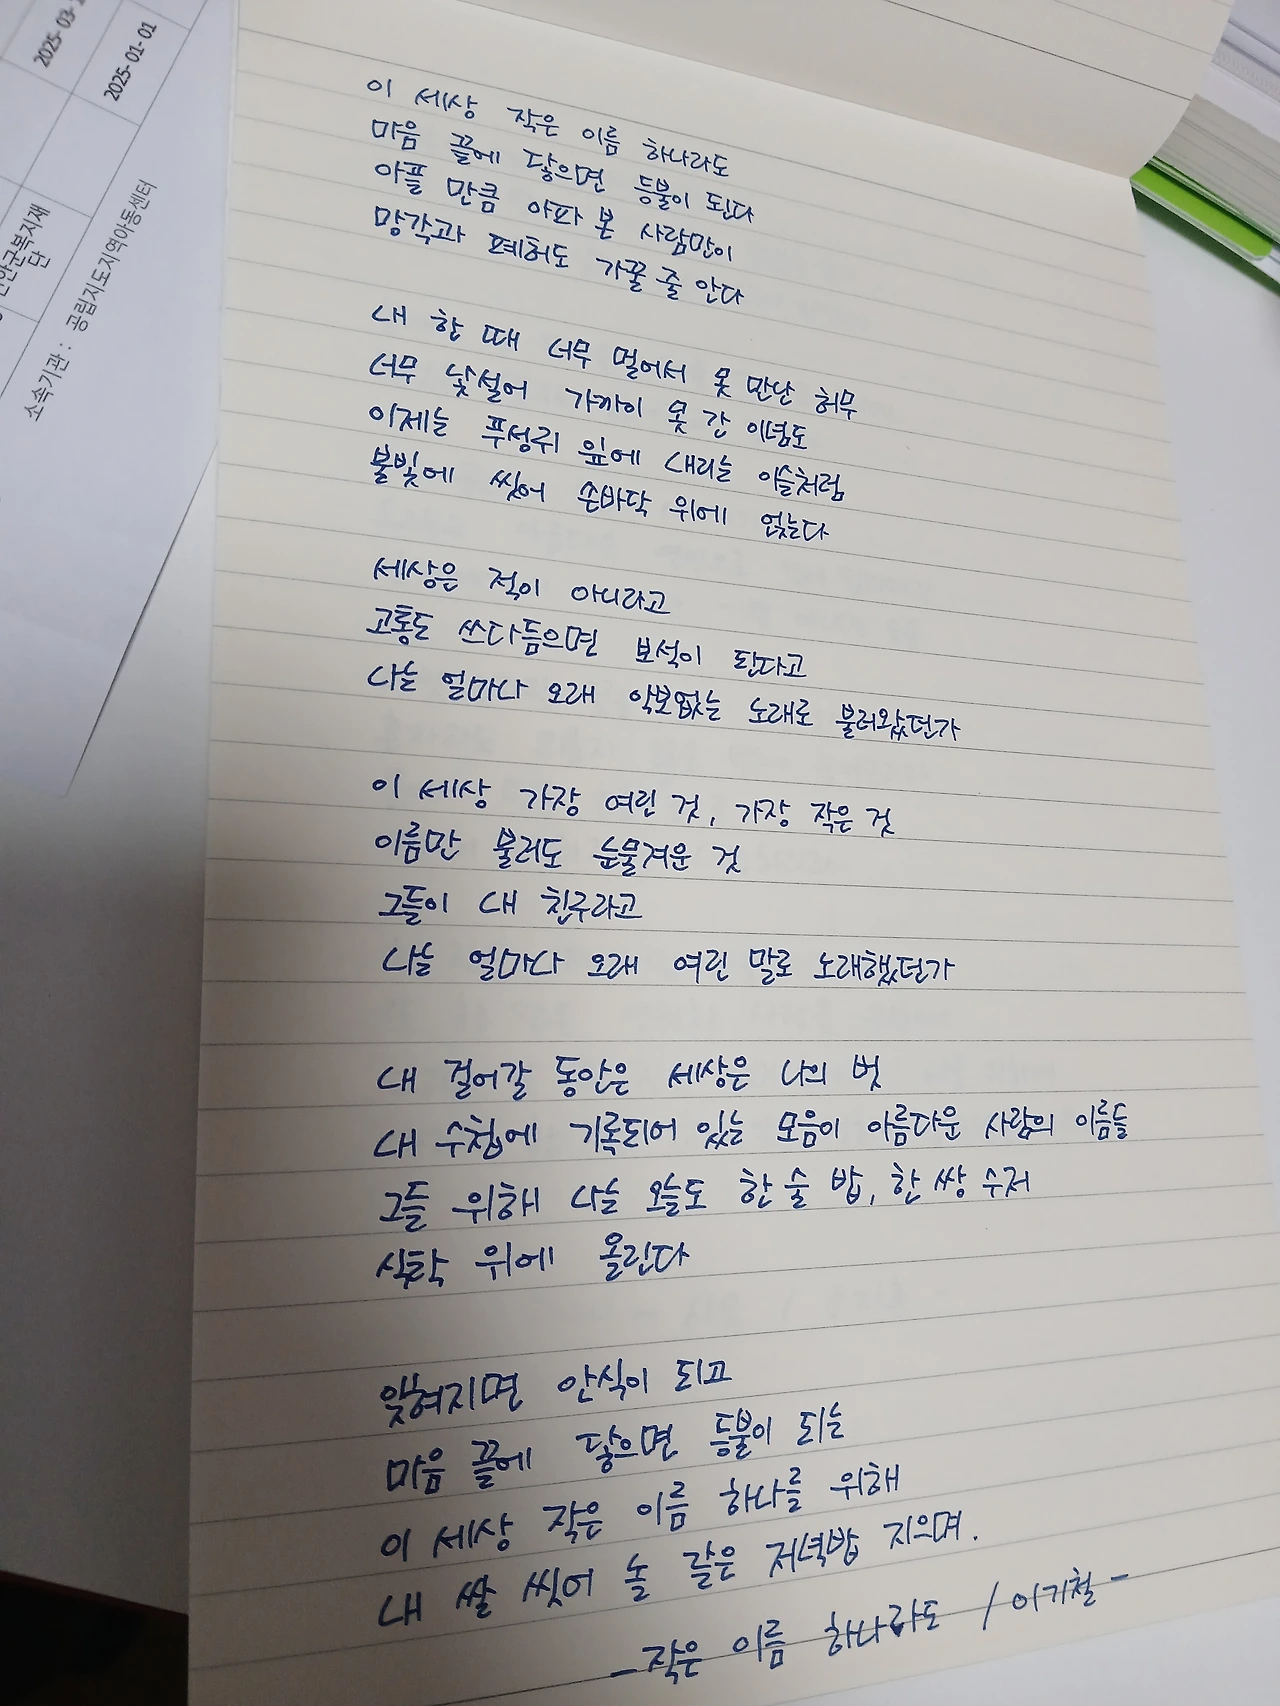 2025-03-
2025-01-01
한국복지재
단
소속기관 : 공립지도지역아동센터
이 세상 작은 이름 하나라도
마음 끝에 닿으면 등불이 된다
아플 만큼 아파 본 사람만이
망각과 폐허도 가꿀 줄 안다
내 한 때 너무 멀어서 못 만난 허무
너무 낯설어 가까이 못 간 이념도
이제는 푸성귀 잎에 내리는 이슬처럼
불빛에 씻어 손바닥 위에 얹는다
세상은 적이 아니라고
고통도 쓰다듬으면 보석이 된다고
나는 얼마나 오래 악보없는 노래로 불러왔던가
이 세상 가장 여린 것, 가장 작은 것
이름만 불러도 눈물겨운 것
그들이 내 친구라고
나는 얼마나 오래 여린 말로 노래했던가
내 걸어갈 동안은 세상은 나의 벗
내 수첩에 기록되어 있는 모음이 아름다운 사람의 이름들
그들 위해 나는 오늘도 한 술 밥, 한 쌍 수저
식탁 위에 올린다
잊혀지면 안식이 되고
마음 끝에 닿으면 등불이 되는
이 세상 작은 이름 하나를 위해
내 쌀 씻어 놀 같은 저녁밥 지으며.
- 작은 이름 하나라도 / 이기철 -